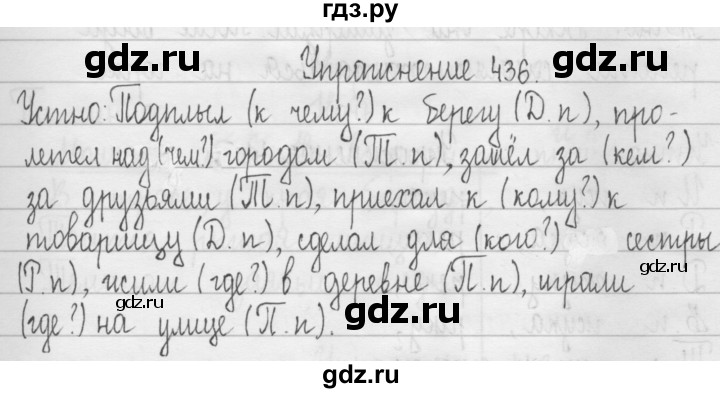 гдз.ру
gdz.ru gdz.ru
Упражнение 436.
Устно: Подплыл (к чему?) к берегу (Д. п), про-
летел над (чем?) городом (Т. п), зашёл за (кем?)
за друзьями (Т. п), приехал к (кому?) к
товарищу (Д. п), сделал для (кого?) сестры
(Р. п), жили (где?) в деревне (П. п), играли
(где?) на улице (П. п).
gdz.ru gdz.ru gdz.ru
gdz.ru